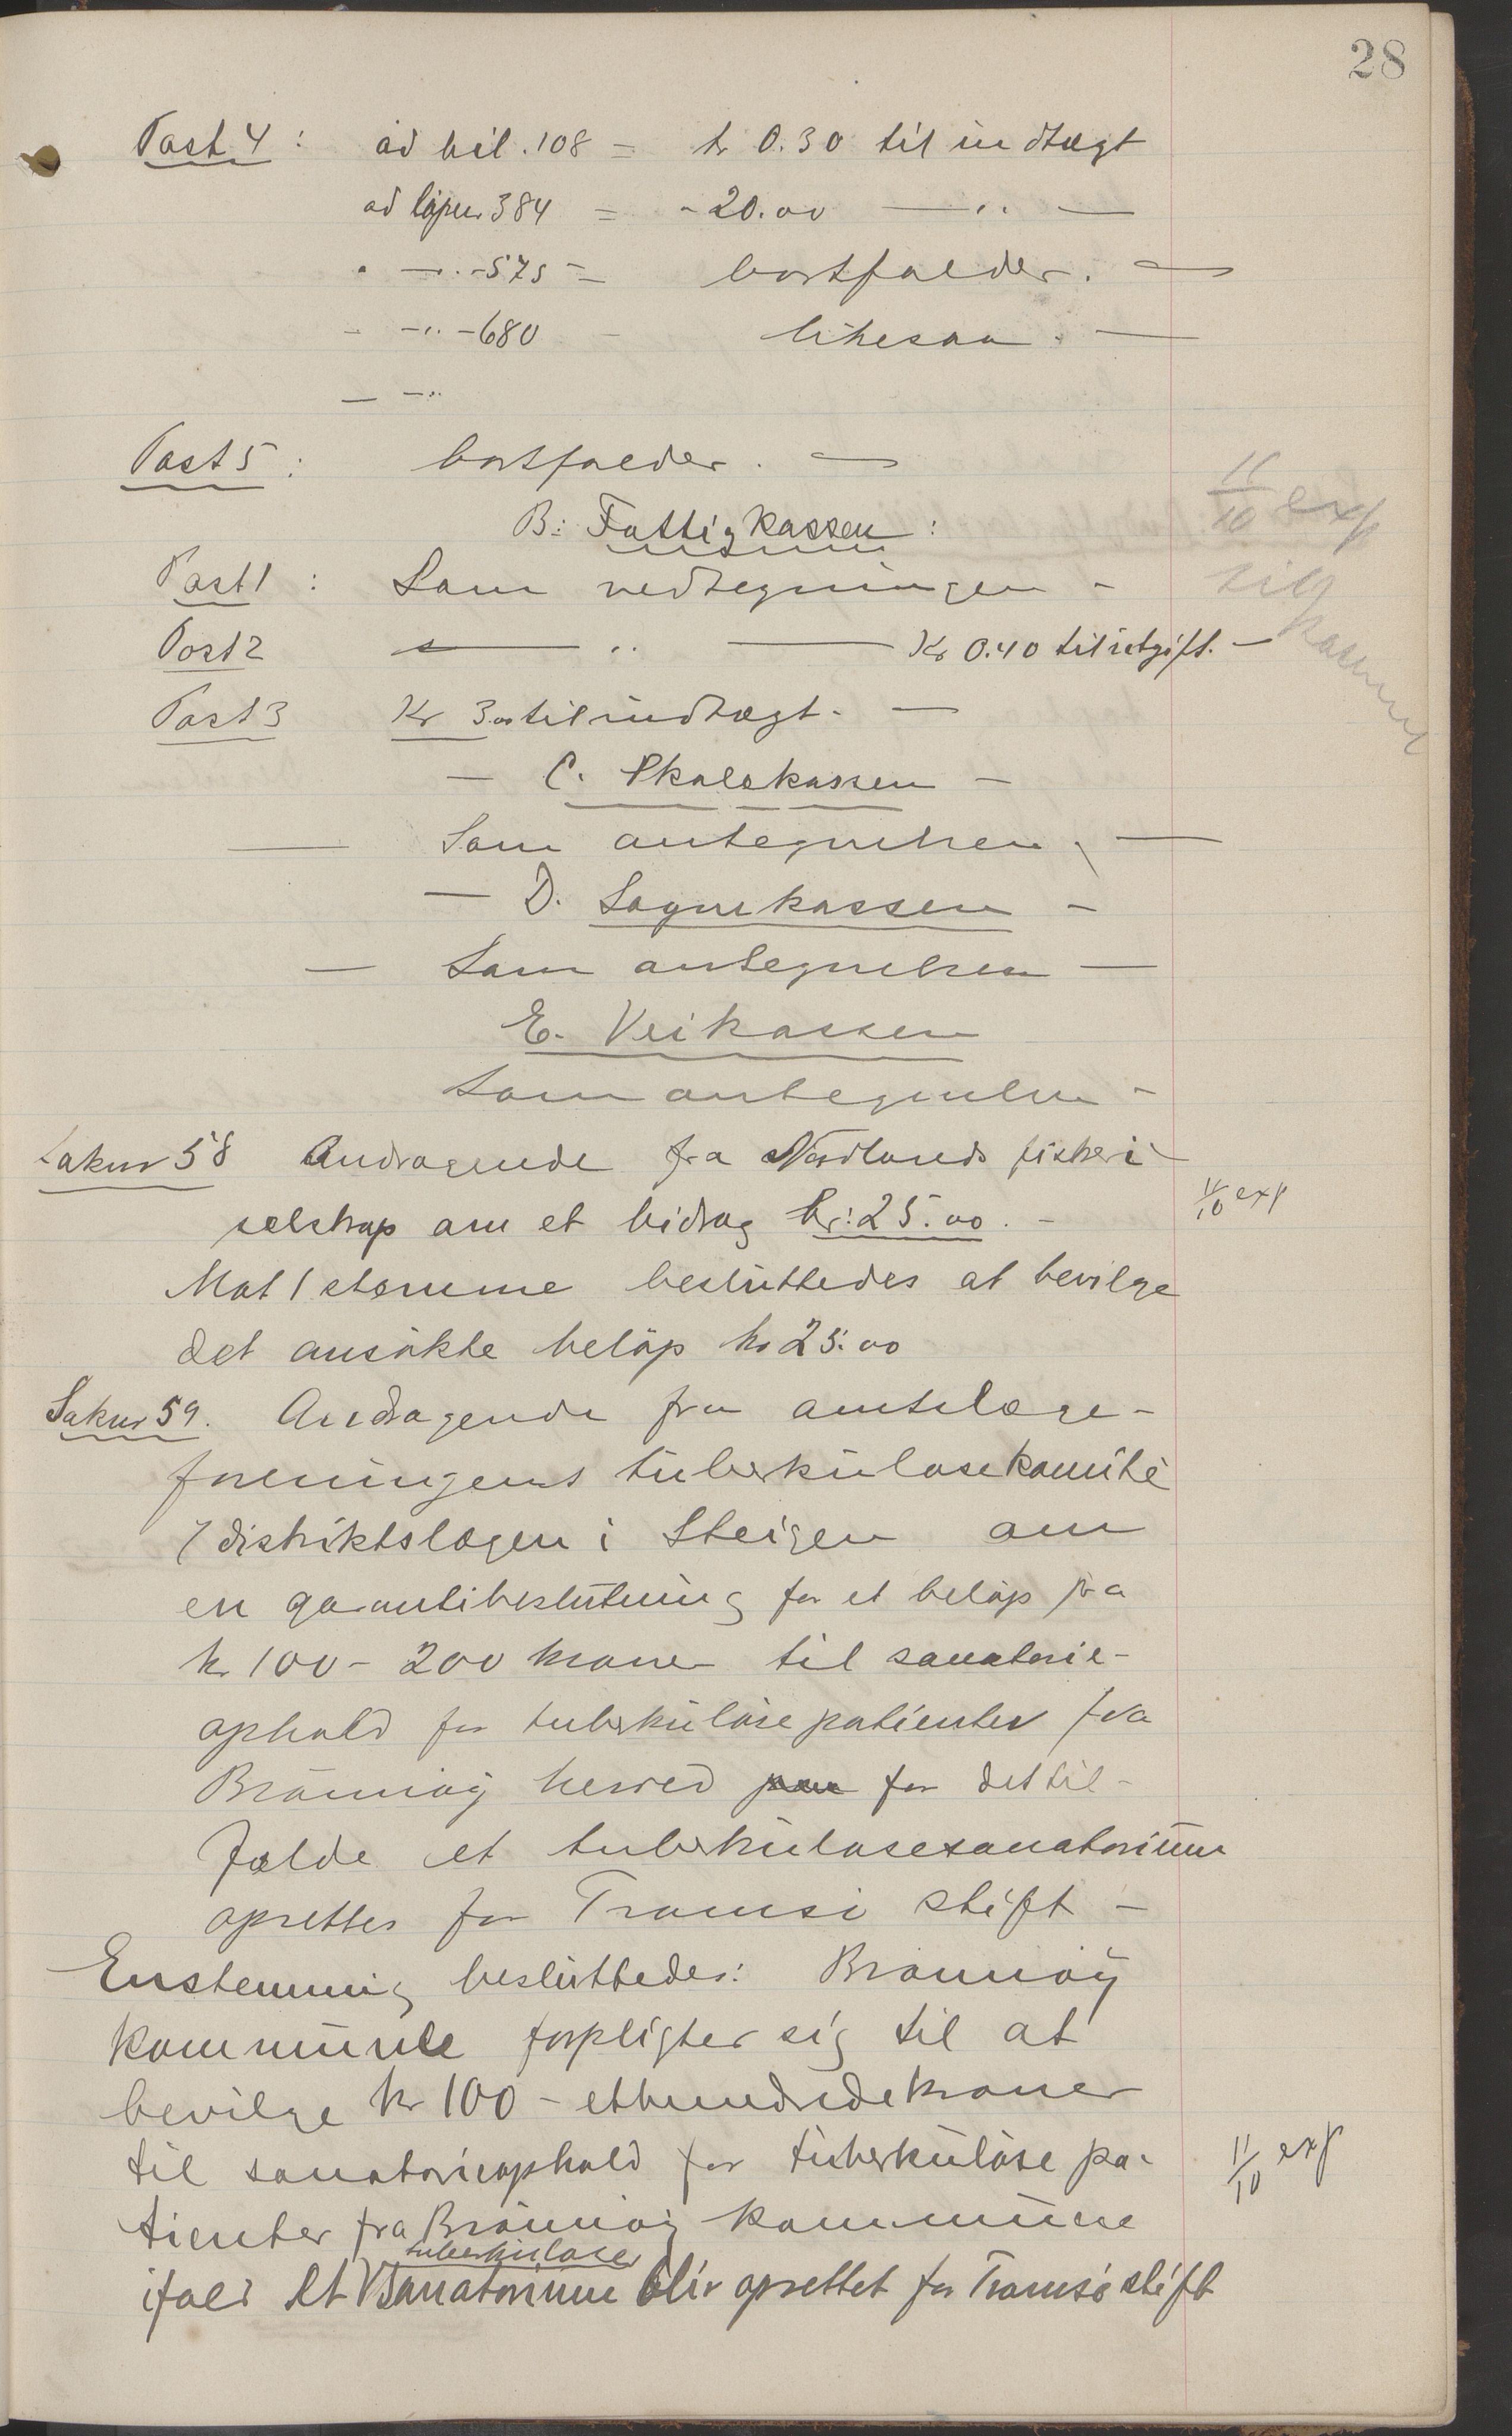 28
Post 4: ad bil. 108 = kr 0.30 til indtægt
ad löpnr 384 = - 20.00 — " —
" — " - 575 = bortfalder. —
- - " - 680 - likesaa. —
— — "
Post 5: bortfalder. —
B: Fattigkassen:
11/10 exp
Post 1: Som vedtegningen -
til
Post 2 — " — Kr 0.40 til utgift. —
Post 3 Kr 3.00 til indtægt. —
— C. Skolekassen —
— Som antegnelsen. —
— D. Sognekassen —
— Som antegnelsen —
E. Veikassen
Som antegnelsen -
Saknr 58 Andragende fra Nordlands fiskeri
selskap om et bidrag kr: 25.00. -
11/10 exp
Mot 1 stemme besluttedes at bevilge
det ansökte belöp kr 25.00
Saknr 59. Andragende fra amtslæge-
foreningens tuberkulosekomité
/ distriktslægen i Steigen om
en garantibeslutning for et belöp fra
kr 100 - 200 kroner til sanatorie-
ophold for tuberkulöse patienter fra
Brönnöy herred for det til-
fælde et tuberkulosesanatorium
oprettes for Tromsö stift -
Enstemmig besluttedes: Brönnöy
kommune forpligter sig til at
bevilge kr 100 - ethundrede kroner
til sanatorieophold for tuberkulöse pa-
11/10 exp
tienter fra Brönnöy kommune
tuberkulose
ifald et V sanatorium blir oprettet for Tromsö stift